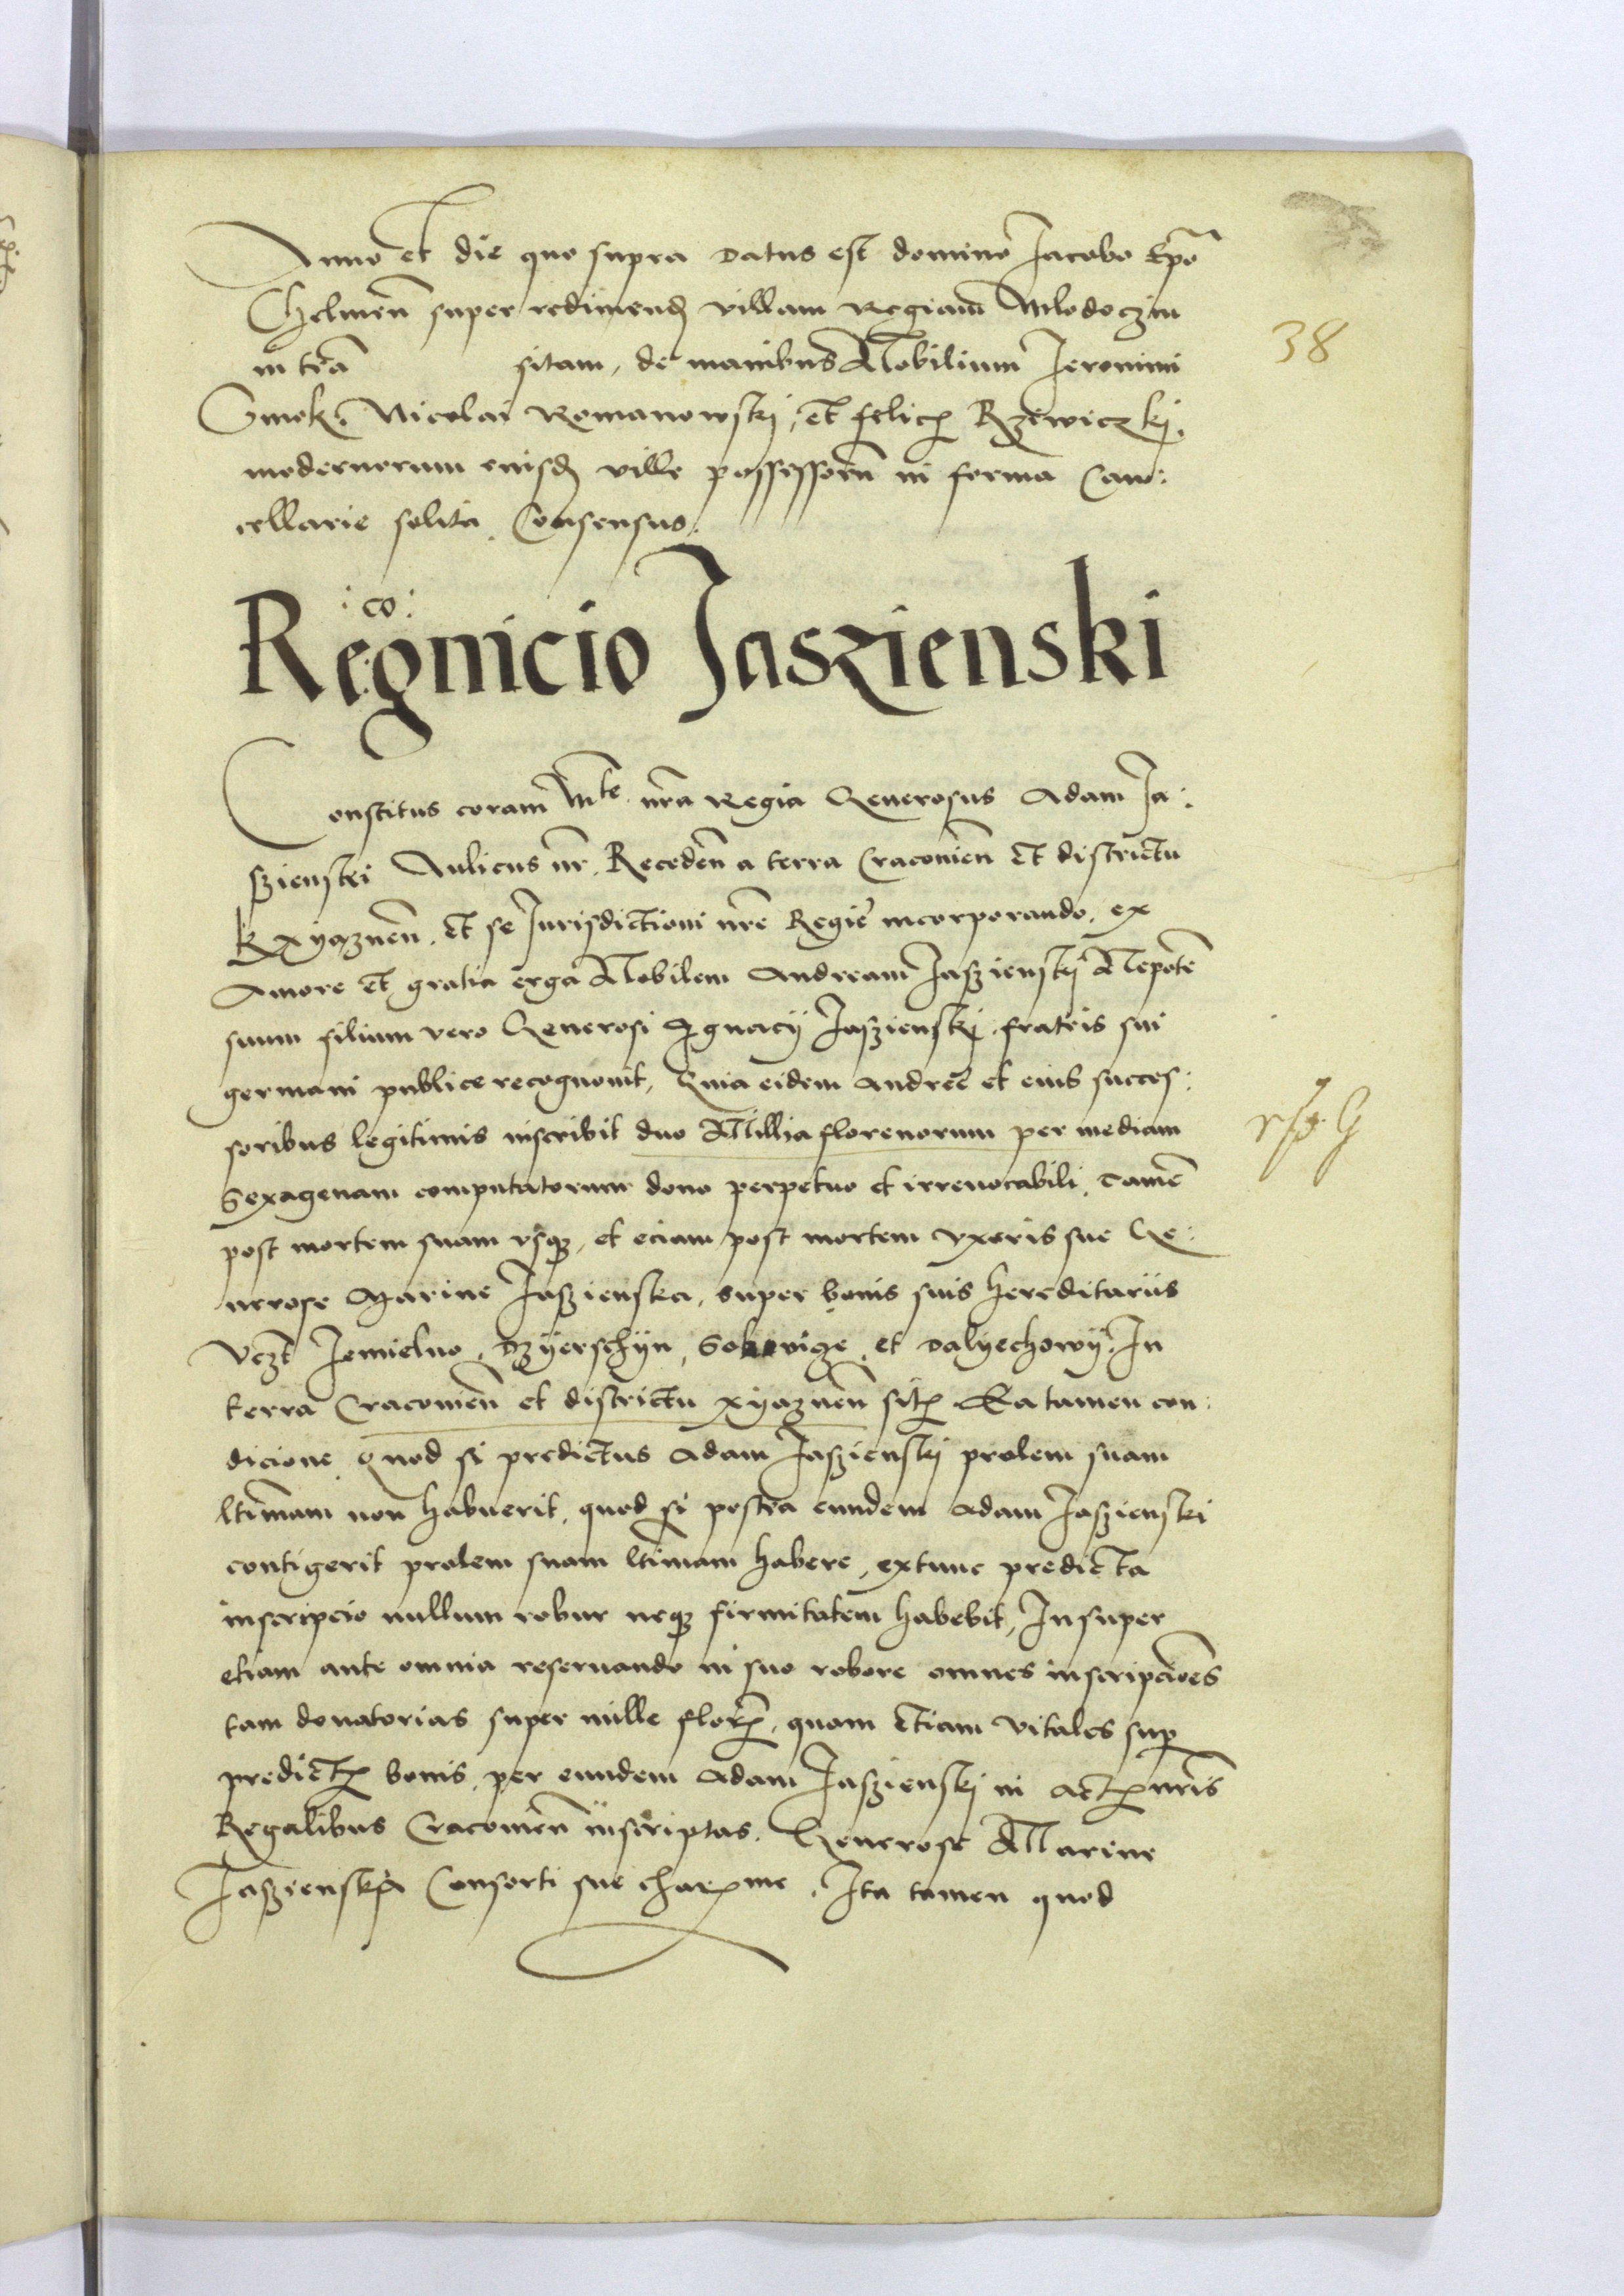 Anno et die quo supra datus est domino Iacobo Epo
Chelmen̄ super redimend̨ villam Regiam Mlodoczin
in tr̄a sitam, de manibus Nobilium Ieronimi
Smok, Nicolai Romanowskj, et felicꝭ Rzewiczkj,
modernorum eiusd̨ ville possessor̄u in forma Can:
cellarie solita Consensus.
:co:
Regnicio Jaszienski
38
Constitus coram Mte n̄ra Regia Generosus Adam Ja:
szienski Aulicus nr̄. Reced̄en a terra Cracouien̄ et districtu
Kxyaznen̄. et se Iurisdictioni nr̄e Regie incorporando, ex
Amore et gratia erga Nobilem Andream Jaszienskj Nepot̄e
suum filium vero Generosi Ignacÿ Jaszienskj fratris sui
germani publice recognouit, Quia eidem Andree et eius succes:
soribus legitimis inscribit duo Millia florenorum per mediam
Sexagenam computatorum dono perpetuo et irreuocabili, tam̄e
post mortem suam vsqꝫ, et eciam post mortem vxoris sue Ge:
nerose Marine Jaszienska, super bonis suis hereditariis
Vczt Jemielno, Dzÿerschyn, et Dalyechowÿ. In
terra Cracouien̄ et districtu xyaznen̄ sitꝭ Ea tamen con:
dicione, Quod si predictus Adam Jaszienskj prolem suam
lt̄imam non habuerit, quod si post̄ea eundem Adam Jaszienski
contigerit prolem suam lt̄imam habere, extunc predicta
inscripcio nullum robur neqꝫ firmitatem habebit, Insuper
etiam ante omnia reseruando in suo robore omnes inscripcio̅es
tam donatorias super mille florꝭ, quam etiam vitales sup̱
predictꝭ bonis, per eundem Adam Jaszienskj in Actꝭ nr̄is
Regalibus Cracouien̄ inscriptas. Generose Marine
Jaszienska Consorti sue charꝭme. Ita tamen quod